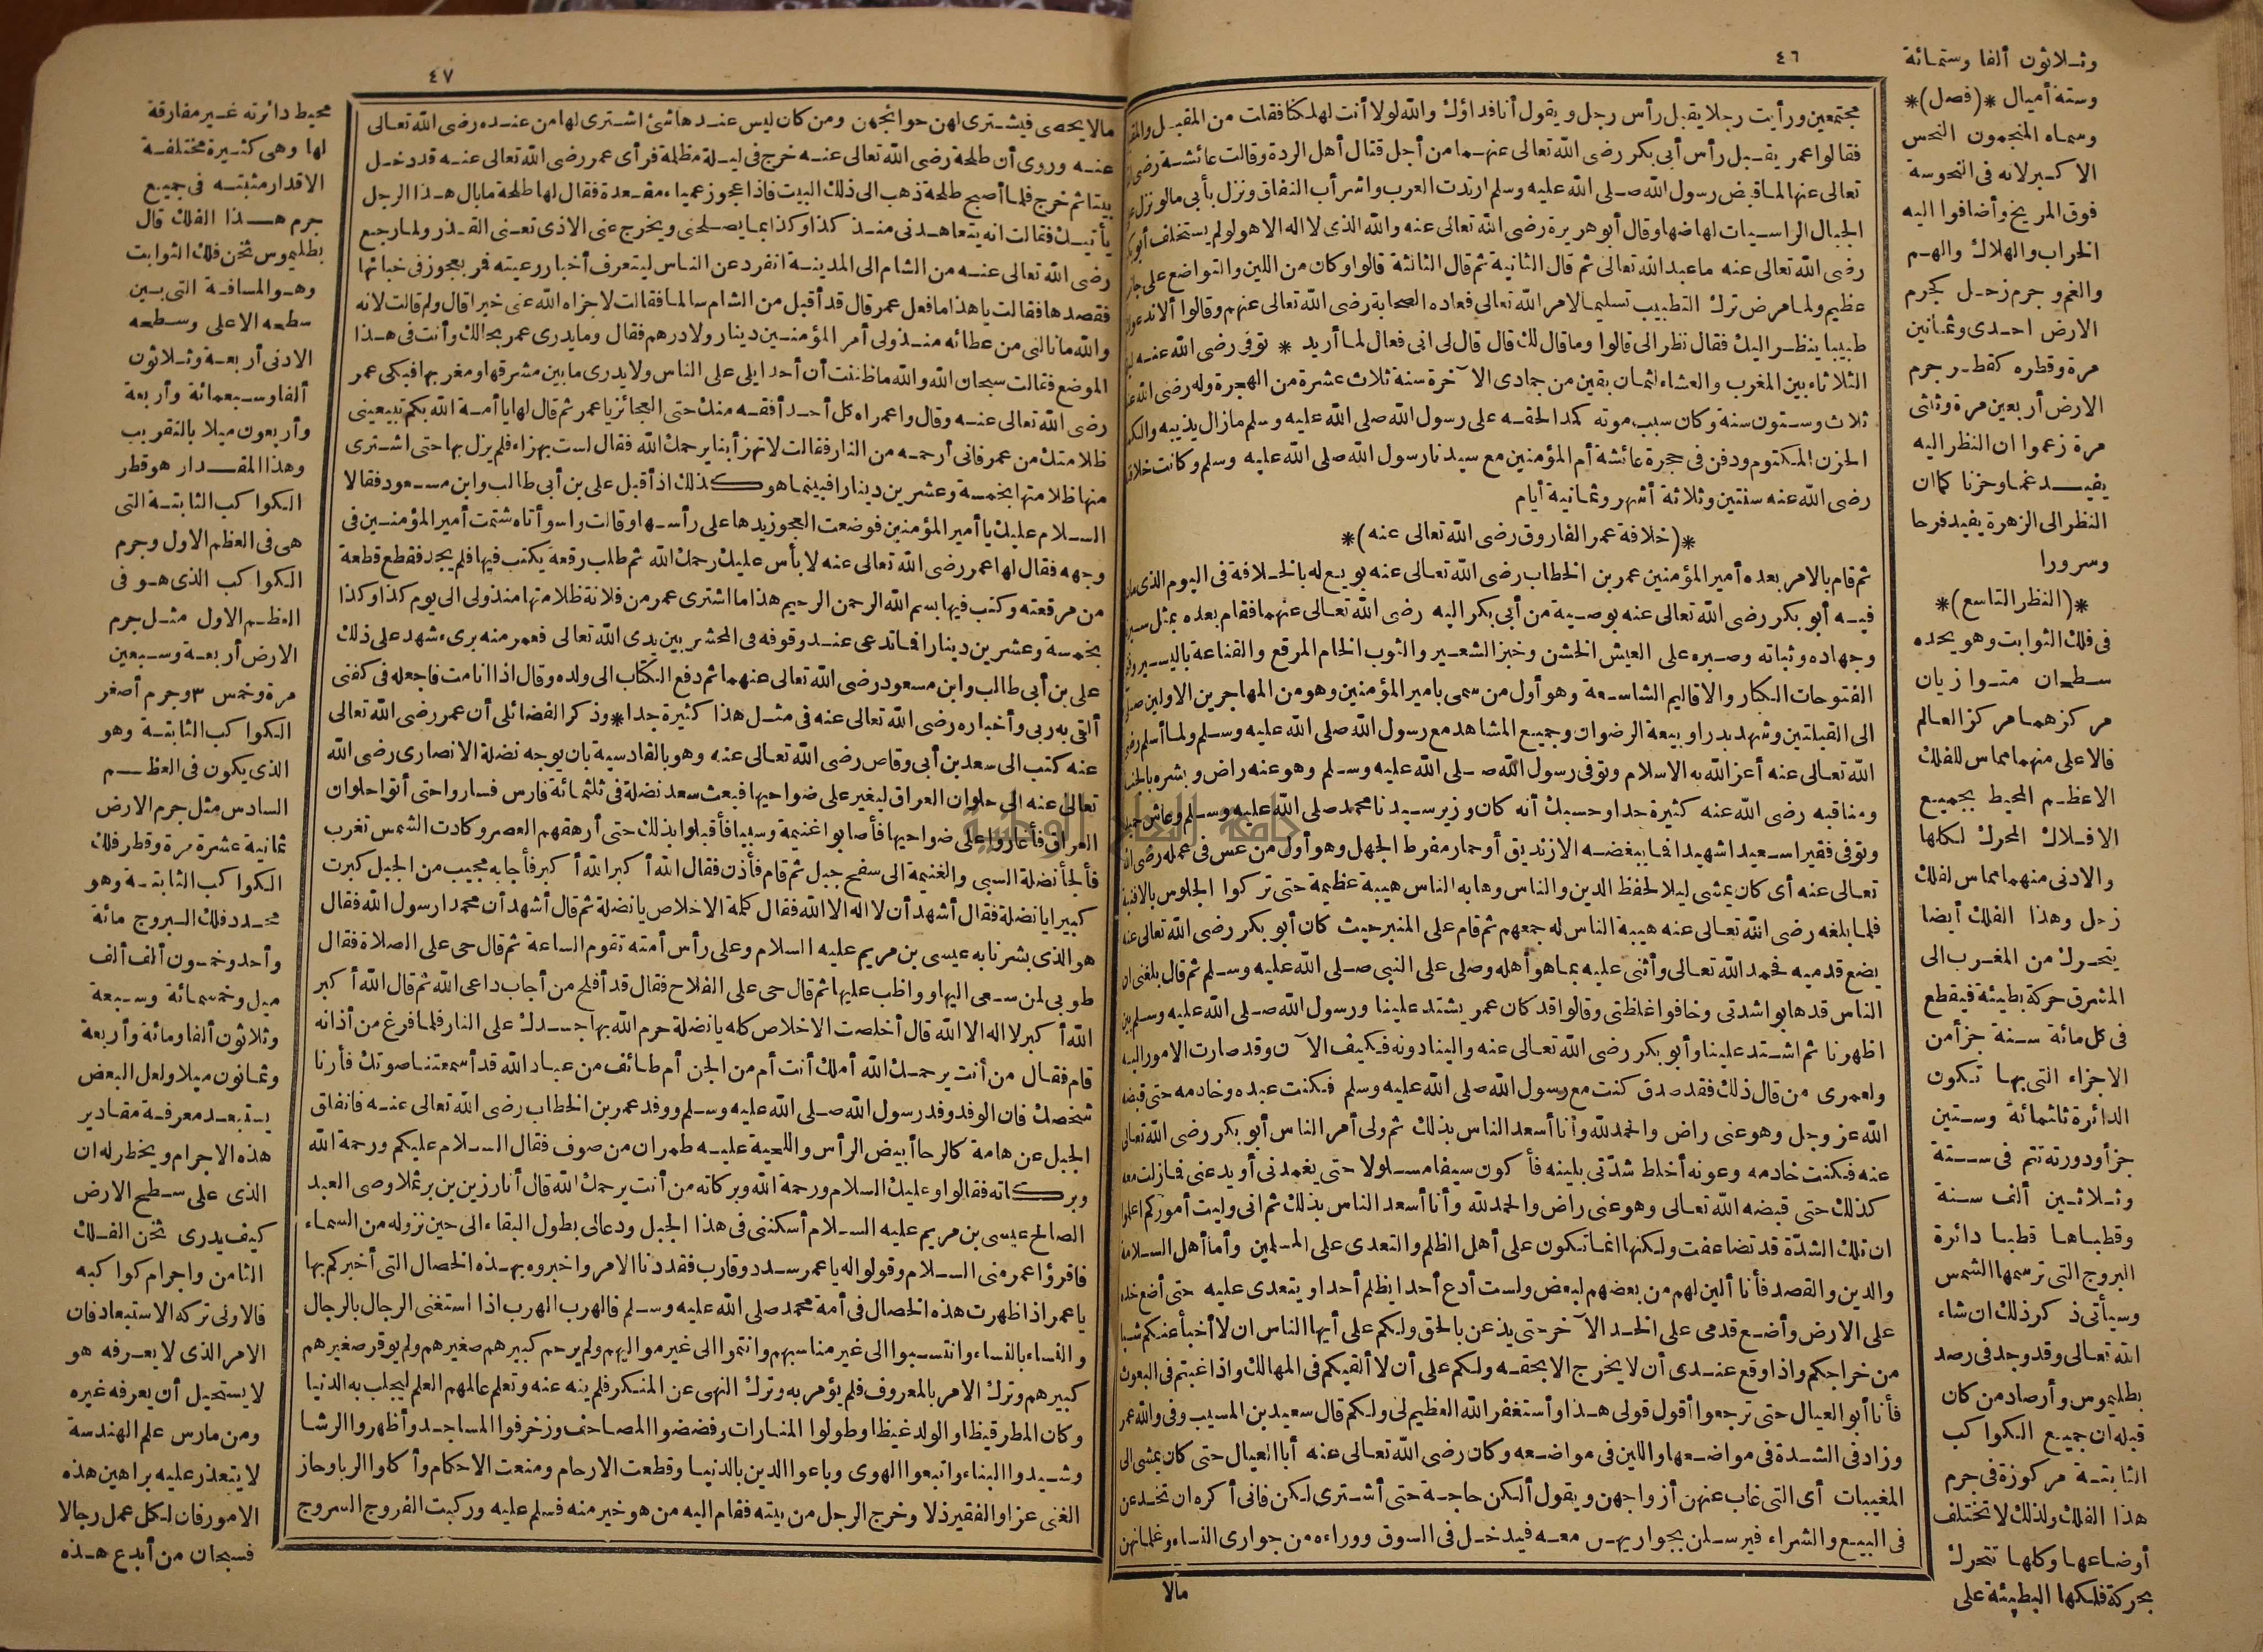 ٤٦
مجتمعين ورأيت رجلا يقبل رأس رجل ويقول أنا فداؤك والله لولا أنت لهلكنا فقلت من المقبل
فقالوا عمر يقبل رأس أبى بكر رضى الله تعالى عنهما من أجل قتال أهل الردة وقالت عائشة رضى
تعالى عنها لما قبض رسول الله صلى الله عليه وسلم ارتدت العرب واشرأب النفاق ونزل بأبى مالو نزل
الجبال الراسيات لهاضها وقال أبو هريرة رضى الله تعالى عنه والله الذى لا اله الا هو لو لم يستخلف
رضى الله تعالى عنه ما عبد الله تعالى ثم قال الثانية ثم قال الثالثة قالوا وكان من اللين والتواضع على
عظيم ولما مرض ترك التطبيب تسليما لامر الله تعالى فعاده الصحابة رضى الله تعالى عنهم وقالوا ألا ندعو
طبيبا ينظر اليك فقال نظر الى قالوا وما قال لك قال قال لى انى فعال لما أريد * توفى رضى الله عنه
الثلاثاء بين المغرب والعشاء لثمان بقين من جمادى الآخرة سنة ثلاث عشرة من الهجرة وله رضى الله
ثلاث وستون سنة وكان سبب موته كمدا لحقه على رسول الله صلى الله عليه وسلم مازال يذيبه
الحزن المكتوم ودفن فى حجرة عائشة أم المؤمنين مع سيدنا رسول الله صلى الله عليه وسلم وكانت
رضى الله عنه سنتين وثلاثة أشهر وثمانية أيام
*(خلافة عمر الفاروق رضى الله تعالى عنه)*
ثم قام بالامر بعده أمير المؤمنين عمر بن الخطاب رضى الله تعالى عنه بويع له بالخلافة فى اليوم الذى
فيه أبو بكر رضى الله تعالى عنه بوصية من أبى بكر اليه رضى الله تعالى عنهما فقام بعده بمثل
وجهاده وثباته وصبره على العيش الخشن وخبز الشعير والثوب الخام المرقع والقناعة باليسير
الفتوحات الكبار والاقاليم الشاسعة وهو أول من سمى بامير المؤمنين وهو من المهاجرين الاولين
الى القبلتين وشهد بدرا وبيعة الرضوان وجميع المشاهد مع رسول الله صلى الله عليه وسلم ولما أسلم
الله تعالى عنه أعز الله به الاسلام وتوفى رسول الله صلى الله عليه وسلم وهو عنه راض وبشره
ومناقبه رضى الله عنه كثيرة جدا وحسبك أنه كان وزير سيدنا محمد صلى الله عليه وسلم وعاش
وتوفى فقيرا سعيدا شهيدا فما يبغضه الا زنديق أو حمار مفرط الجهل وهو أول من عس فى عمله رضى
تعالى عنه أى كان يمشى ليلا لحفظ الدين والناس وهابه الناس هيبة عظيمة حتى تركوا الجلوس
فلما بلغه رضى الله تعالى عنه هيبة الناس له جمعهم ثم قام على المنبر حيث كان أبو بكر رضى الله تعالى عنه
يضع قدميه فحمد الله تعالى وأثنى عليه بما هو أهله وصلى على النبى صلى الله عليه وسلم ثم قال بلغنى ان
الناس قد هابوا شدتى وخافوا غلظتى وقالوا قد كان عمر يشتد علينا ورسول الله صلى الله عليه وسلم بين
اظهرنا ثم اشتد علينا وأبو بكر رضى الله تعالى عنه والينا دونه فكيف الآن وقد صارت الامور اليه
ولعمرى من قال ذلك فقد صدق كنت مع رسول الله صلى الله عليه وسلم فكنت عبده وخادمه حتى قبضه
الله عز وجل وهو عنى راض والحمد لله وأنا أسعد الناس بذلك ثم ولى أمر الناس أبو بكر رضى الله تعالى
عنه فكنت خادمه وعونه أخلط شدتى بلينه فأكون سيفا مسلولا حتى يغمدنى أو يدعنى فمازلت معه
كذلك حتى قبضه الله تعالى وهو عنى راض والحمد لله وأنا أسعد الناس بذلك ثم انى وليت أموركم اعلموا
ان تلك الشدة قد تضاعفت ولكنها انما تكون على أهل الظلم والتعدى على المسلمين وأما أهل السلامة
والدين والقصد فأنا ألين لهم من بعضهم لبعض ولست أدع أحدا يظلم أحدا ويتعدى عليه حتى أضع خده
على الارض وأضع قدمى على الخد الآخر حتى يذعن بالحق ولكم على أيها الناس ان لا أخبأ عنكم شيأ
من خراجكم واذا وقع عندى أن لا يخرج الا بحقه ولكم على أن لا ألقيكم فى المهالك واذا غبتم فى البعوث
فأنا أبو العيال حتى ترجعوا أقول قولى هذا وأستغفر الله العظيم لى ولكم قال سعيد بن المسيب وفى والله عمر
وزاد فى الشدة فى مواضعها واللين فى مواضعه وكان رضى الله تعالى عنه أبا العيال حتى كان يمشى الى
المغيبات أى التى غاب عنهن أزواجهن ويقول ألكن حاجة حتى أشترى لكن فانى أكره ان تخدعن
فى البيع والشراء فيرسلن بجواريهن معه فيدخل فى السوق ووراءه من جوارى النساء وغلمانهن
مالا
وثلاثون ألفا وستمائة
وستة أميال *(فصل)*
وسماه المنجمون النحس
الاكبر لانه فى النحوسة
فوق المريخ وأضافوا اليه
الخراب والهلاك والهم
والغم وجرم زحل كجرم
الارض احدى وثمانين
مرة وقطره كقطر جرم
الارض أربعين مرة وثلثى
مرة زعموا ان النظر اليه
يفيد غما وحزنا كما ان
النظر الى الزهرة يفيد فرحا
وسرورا
*(النظر التاسع)*
فى فلك الثوابت وهو يحده
سطحان متوازيان
مركزهما مركز العالم
فالاعلى منهما مماس للفلك
الاعظم المحيط بجميع
الافلاك المحرك لكلها
والادنى منهما مماس لفلك
زحل وهذا الفلك أيضا
يتحرك من المغرب الى
المشرق حركة بطيئة فيقطع
فى كل مائة سنة جزأ من
الاجزاء التى بها تكون
الدائرة ثلثمائة وستين
جزأ ودورته تتم فى ستة
وثلاثين ألف سنة
وقطباها قطبا دائرة
البروج التى ترسمها الشمس
وسيأتى ذكر ذلك ان شاء
الله تعالى وقد وجد فى رصد
بطليموس وأرصاد من كان
قبله ان جميع الكواكب
الثابتة مركوزة فى جرم
هذا الفلك ولذلك لا تختلف
أوضاعها وكلها تتحرك
بحركة فلكها البطيئة على
٤٧
مالا يحصى فيشترى لهن حوائجهن ومن كان ليس عندها شئ اشترى لها من عنده رضى الله تعالى
عنه وروى أن طلحة رضى الله تعالى عنه خرج فى ليلة مظلمة فرأى عمر رضى الله تعالى عنه قد دخل
بيتا ثم خرج فلما أصبح طلحة ذهب الى ذلك البيت فاذا عجوز عمياء مقعدة فقال لها طلحة ما بال هذا الرجل
يأتيك فقالت انه يتعاهدنى منذ كذا وكذا بما يصلحنى ويخرج عنى الاذى تعنى القذر ولما رجع
رضى الله تعالى عنه من الشام الى المدينة انفرد عن الناس ليتعرف أخبار رعيته فمر بعجوز فى خبائها
فقصدها فقالت يا هذا ما فعل عمر قال قد أقبل من الشام سالما فقالت لا جزاه الله عنى خيرا قال ولم قالت لانه
والله ما نالنى من عطائه منذ ولى أمر المؤمنين دينار ولا درهم فقال وما يدرى عمر بحالك وأنت فى هذا
الموضع فقالت سبحان الله والله ما ظننت أن أحدا يلى على الناس ولا يدرى ما بين مشرقها ومغربها فبكى عمر
رضى الله تعالى عنه وقال واعمراه كل أحد أفقه منك حتى العجائز يا عمر ثم قال لها يا أمة الله بكم تبيعينى
ظلامتك من عمر فانى أرحمه من النار فقالت لا تهزأ بنا يرحمك الله فقال لست بهزاء فلم يزل بها حتى اشترى
منها ظلامتها بخمسة وعشرين دينارا فبينما هو كذلك اذ أقبل على بن أبى طالب وابن مسعود فقالا
السلام عليك يا أمير المؤمنين فوضعت العجوز يدها على رأسها وقالت واسوأتاه شتمت أمير المؤمنين فى
وجهه فقال لها عمر رضى الله تعالى عنه لا بأس عليك رحمك الله ثم طلب رقعة يكتب فيها فلم يجد فقطع قطعة
من مرقعته وكتب فيها بسم الله الرحمن الرحيم هذا ما اشترى عمر من فلانة ظلامتها منذ ولى الى يوم كذا وكذا
بخمسة وعشرين دينارا فما تدعى عند وقوفه فى المحشر بين يدى الله تعالى فعمر منه برىء شهد على ذلك
على بن أبى طالب وابن مسعود رضى الله تعالى عنهما ثم دفع الكتاب الى ولده وقال اذا أنا مت فاجعله فى كفنى
ألقى به ربى وأخباره رضى الله تعالى عنه فى مثل هذا كثيرة جدا * وذكر الفضائلى أن عمر رضى الله تعالى
عنه كتب الى سعد بن أبى وقاص رضى الله تعالى عنه وهو بالقادسية بان يوجه نضلة الانصارى رضى الله
تعالى عنه الى حلوان العراق ليغير على ضواحيها فبعث سعد نضلة فى ثلثمائة فارس فساروا حتى أتوا حلوان
العراق فأغاروا على ضواحيها فأصابوا غنيمة وسبيا فأقبلوا بذلك حتى أرهقهم العصر وكادت الشمس تغرب
فألجأ نضلة السبى والغنيمة الى سفح جبل ثم قام فأذن فقال الله أكبر الله أكبر فأجابه مجيب من الجبل كبرت
كبيرا يا نضلة فقال أشهد أن لا اله الا الله فقال كلمة الاخلاص يا نضلة ثم قال أشهد أن محمدا رسول الله فقال
هو الذى بشرنا به عيسى بن مريم عليه السلام وعلى رأس أمته تقوم الساعة ثم قال حى على الصلاة فقال
طوبى لمن سعى اليها وواظب عليها ثم قال حى على الفلاح فقال قد أفلح من أجاب داعى الله ثم قال الله أكبر
الله أكبر لا اله الا الله قال أخلصت الاخلاص كله يا نضلة حرم الله بها جسدك على النار فلما فرغ من أذانه
قام فقال من أنت يرحمك الله أملك أنت أم من الجن أم طائف من عباد الله قد أسمعتنا صوتك فأرنا
شخصك فان الوفد وفد رسول الله صلى الله عليه وسلم ووفد عمر بن الخطاب رضى الله تعالى عنه فانفلق
الجبل عن هامة كالرحا أبيض الرأس واللحية عليه طمران من صوف فقال السلام عليكم ورحمة الله
وبركاته فقالوا وعليك السلام ورحمة الله وبركاته من أنت يرحمك الله قال أنا رزين بن برثملا وصى العبد
الصالح عيسى بن مريم عليه السلام أسكننى فى هذا الجبل ودعالى بطول البقاء الى حين نزوله من السماء
فاقرؤا عمر منى السلام وقولوا له يا عمر سدد وقارب فقد دنا الامر واخبروه بهذه الخصال التى أخبركم بها
يا عمر اذا ظهرت هذه الخصال فى أمة محمد صلى الله عليه وسلم فالهرب الهرب اذا استغنى الرجال بالرجال
والنساء بالنساء وانتسبوا الى غير مناسبهم وانتموا الى غير مواليهم ولم يرحم كبيرهم صغيرهم ولم يوقر صغيرهم
كبيرهم وترك الامر بالمعروف فلم يؤمر به وترك النهى عن المنكر فلم ينه عنه وتعلم عالمهم العلم ليجلب به الدنيا
وكان المطر قيظا والولد غيظا وطولوا المنارات وفضضوا المصاحف وزخرفوا المساجد وأظهروا الرشا
وشيدوا البناء واتبعوا الهوى وباعوا الدين بالدنيا وقطعت الارحام ومنعت الاحكام وأكلوا الربا وحاز
الغنى عزا والفقير ذلا وخرج الرجل من بيته فقام اليه من هو خير منه فسلم عليه وركبت الفروج السروج
محيط دائرته غير مفارقة
لها وهى كثيرة مختلفة
الاقدار مثبتة فى جميع
جرم هذا الفلك قال
بطليموس ثخن فلك الثوابت
وهو المسافة التى بين
سطحه الاعلى وسطحه
الادنى أربعة وثلاثون
ألفا وسبعمائة وأربعة
وأربعون ميلا بالتقريب
وهذا المقدار هو قطر
الكواكب الثابتة التى
هى فى العظم الاول وجرم
الكواكب الذى هو فى
العظم الاول مثل جرم
الارض أربعة وسبعين
مرة وخمس ٣ وجرم أصغر
الكواكب الثابتة وهو
الذى يكون فى العظم
السادس مثل جرم الارض
ثمانية عشرة مرة وقطر فلك
الكواكب الثابتة وهو
محدد فلك البروج مائة
وأحد وخمسون ألف ألف
ميل وخمسمائة وسبعة
وثلاثون ألفا ومائة وأربعة
وثمانون ميلا ولعل البعض
يستبعد معرفة مقادير
هذه الاجرام ويخطر له ان
الذى على سطح الارض
كيف يدرى ثخن الفلك
الثامن واجرام كواكبه
فالاولى تركه الاستبعاد فان
الامر الذى لا يعرفه هو
لا يستحيل أن يعرفه غيره
ومن مارس علم الهندسة
لا يتعذر عليه براهين هذه
الامور فان لكل عمل رجالا
فسبحان من أبدع هذه